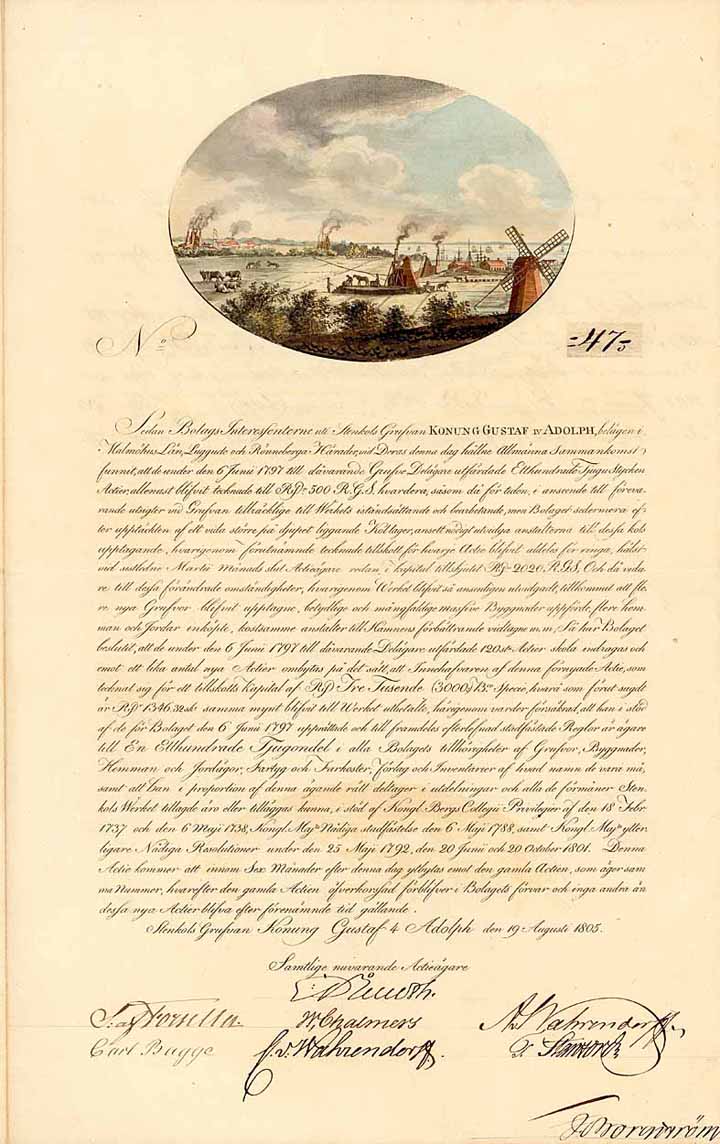 No
=47=
Sedan Bolags Interessenterne uti Stenkols Grufvan KONUNG GUSTAF IV ADOLPH, belägen i
Malmöhus Län, Luggude och Rönneberga Härader, vid Deras denna dag hållne Allmänna Sammankomst
funnit, att de under den 6 Junii 1797 till dåvarande Grufve Delägare utfärdade Etthundrade Tjugu Stycken
Actier, allenast blifvit tecknade till R:dr 500 R.G.S. hvardera, såsom då för tiden, i anseende till föreva-
rande utsigter vid Grufvan tillräcklige till Werkets iståndsättande och bearbetande, men Bolaget sedermera ef-
ter upptäckten af ett vida större, på djupet liggande Kol lager, ansett nödigt utvidga anstalterna till dessa kols
upptagande, hvarigenom förutnämnde tecknade tillskott för hvarje Actie blifvit aldeles för ringa, hälst
vid sistledne Martii Månads slut Actieägare redan i kapital tillskjutit R:dr 2020. R.G.S. Och då vida-
re till dessa förändrade omständigheter, hvargenom Werket blifvit så ansenligen utvidgadt, tillkommit att fle-
re nya Grufvor blifvit upptagne, betydlige och mångfaldige massive Byggnader uppförde, flere hem-
man och Jordar inköpte, kostsamme anstalter till Hamnens förbättrande vidtagne m.m; Så har Bolaget
beslutit, att de under den 6 Junii 1797 till dåvarande Delägare utfärdade 120 st. Actier skola indragas och
emot ett lika antal nya Actier ombytas på det sätt, att Innehafvaren af denna förnyade Actie, som
tecknat sig för ett tillskotts Kapital af R:dr Tre Tusende (3000) B:co Specie, hvarå som förut sagdt
är R:dr 1346.32 sk: samma mynt blifvit till Werket utbetalte, härigenom varder försäkrad, att han i stöd
af de för Bolaget den 6 Junii 1797 upprättade och till framdeles efterlefnad stadfästade Reglor är ägare
till En Etthundrade Tjugondel i alla Bolagets tillhörigheter af Grufvor, Byggnader,
Hemman och Jordägor, Fartyg och Farkoster, förlag och Inventarier af hvad namn de vara må,
samt att han i proportion af denna ägande rätt deltager i utdelningar och alla de förmåner Sten-
kols Werket tillagde äro eller tilläggas kunna, i stöd af Kongl. Bergs Collegii Privilegier af den 18 Febr.
1737 och den 6 Maji 1738, Kongl. Maj:ts Nådiga stadfästelse den 6 Maji 1788, samt Kongl. Maj:ts ytter-
ligare Nådiga Resolutioner under den 25 Maji 1792, den 20 Junii och 20 October 1801. Denna
Actie kommer att innom Sex Månader efter denna dag utbytas emot den gamla Actien, som äger sam-
ma Nummer, hvarefter den gamla Actien öfverkorssad förblifver i Bolagets förvar och inga andra än
dessa nya Actier blifva efter förenämnde tid gällande.
Stenkols Grufvan Konung Gustaf 4 Adolph den 19 Augusti 1805.
Samtlige nuvarande Actieägare
W, Chalmers
Carl Bagge
C. v. Wahrendorff.
A. Wahrendorff.